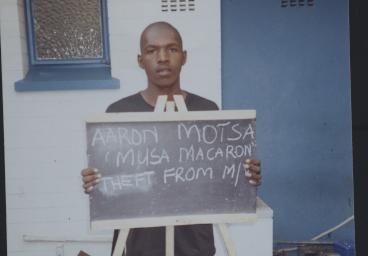 AARON MOTSA
"MUSA MACARON"
THEFT FROM M/V